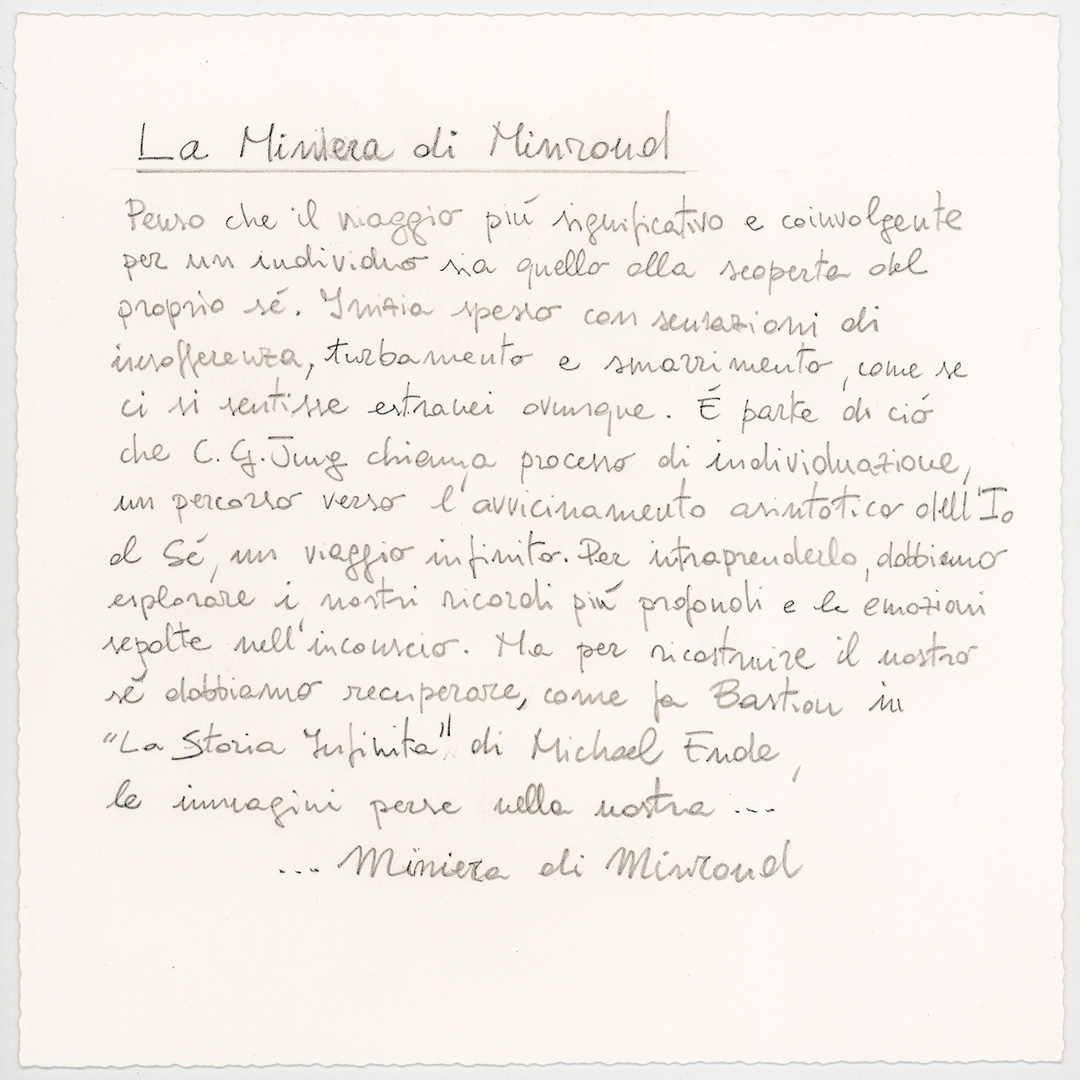 La Miniera di Minroud
Penso che il viaggio piú significativo e coinvolgente
per un individuo sia quello alla scoperta del
proprio sé. Inizia spesso con sensazioni di
insofferenza, turbamento e smarrimento, come se
ci si sentisse estranei ovunque. É parte di ció
che C. G. Jung chiama processo di individuazione,
un percorso verso l'avvicinamento asintotico dell'Io
al Sé, un viaggio infinito. Per intraprenderlo, dobbiamo
esplorare i nostri ricordi piú profondi e le emozioni
sepolte nell'inconscio. Ma per ricostruire il nostro
sé dobbiamo recuperare, come fa Bastian in
"La Storia Infinita" di Michael Ende,
le immagini perse nella nostra ...
... Miniera di Minroud